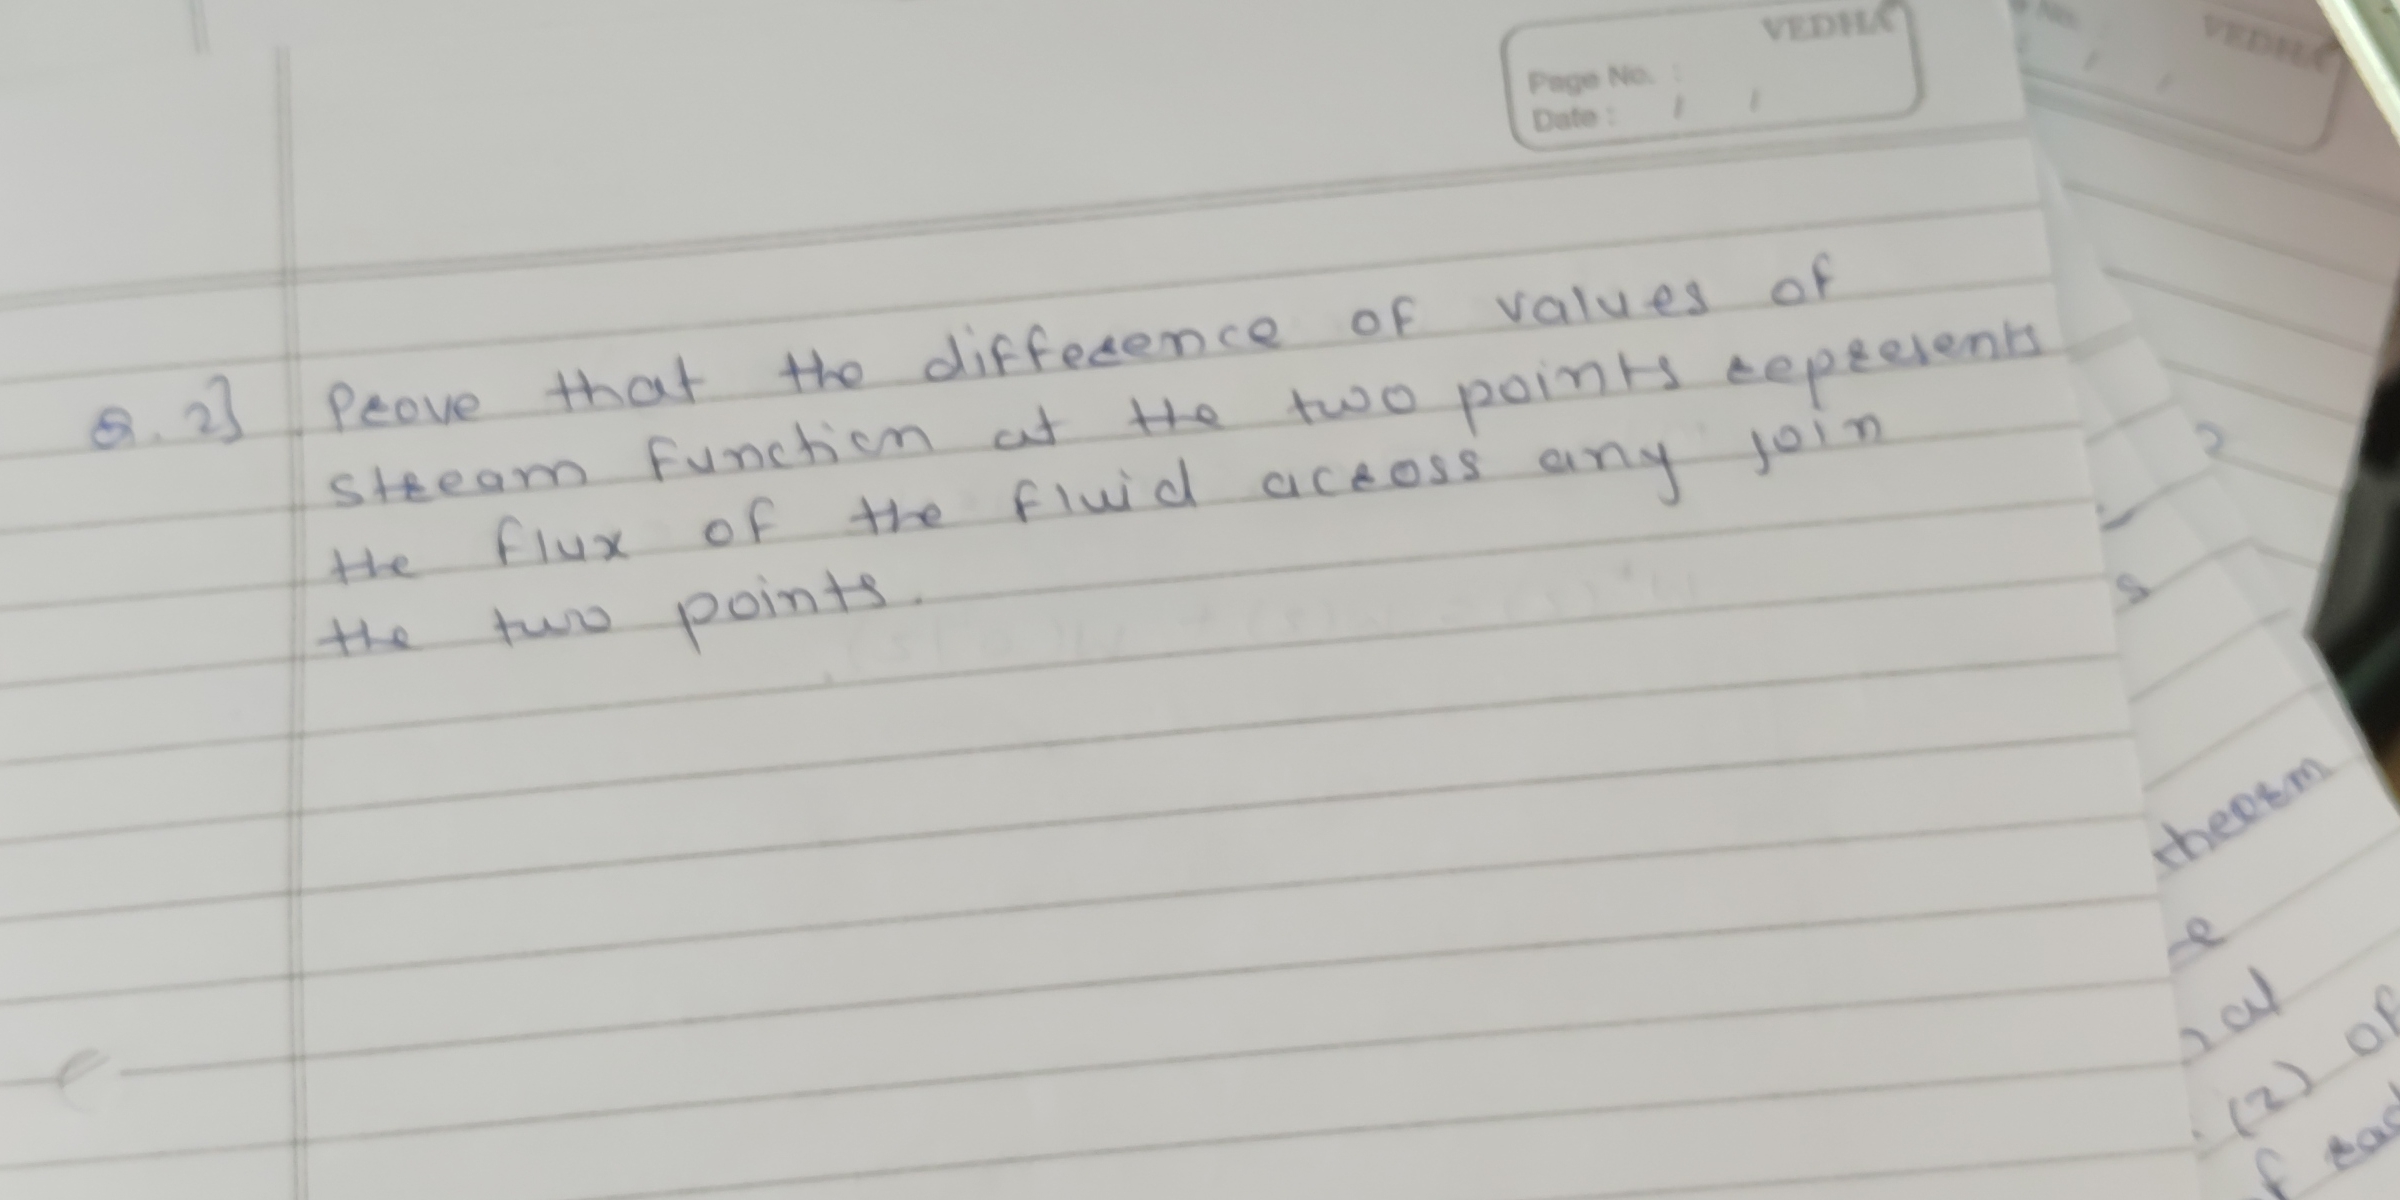 VEDHA
Page No. :
Date : / /
Q. 2] Prove that the difference of values of
stream function at the two points represents
the flux of the fluid across any join
the two points.
VEDHA
theorm
(2) of